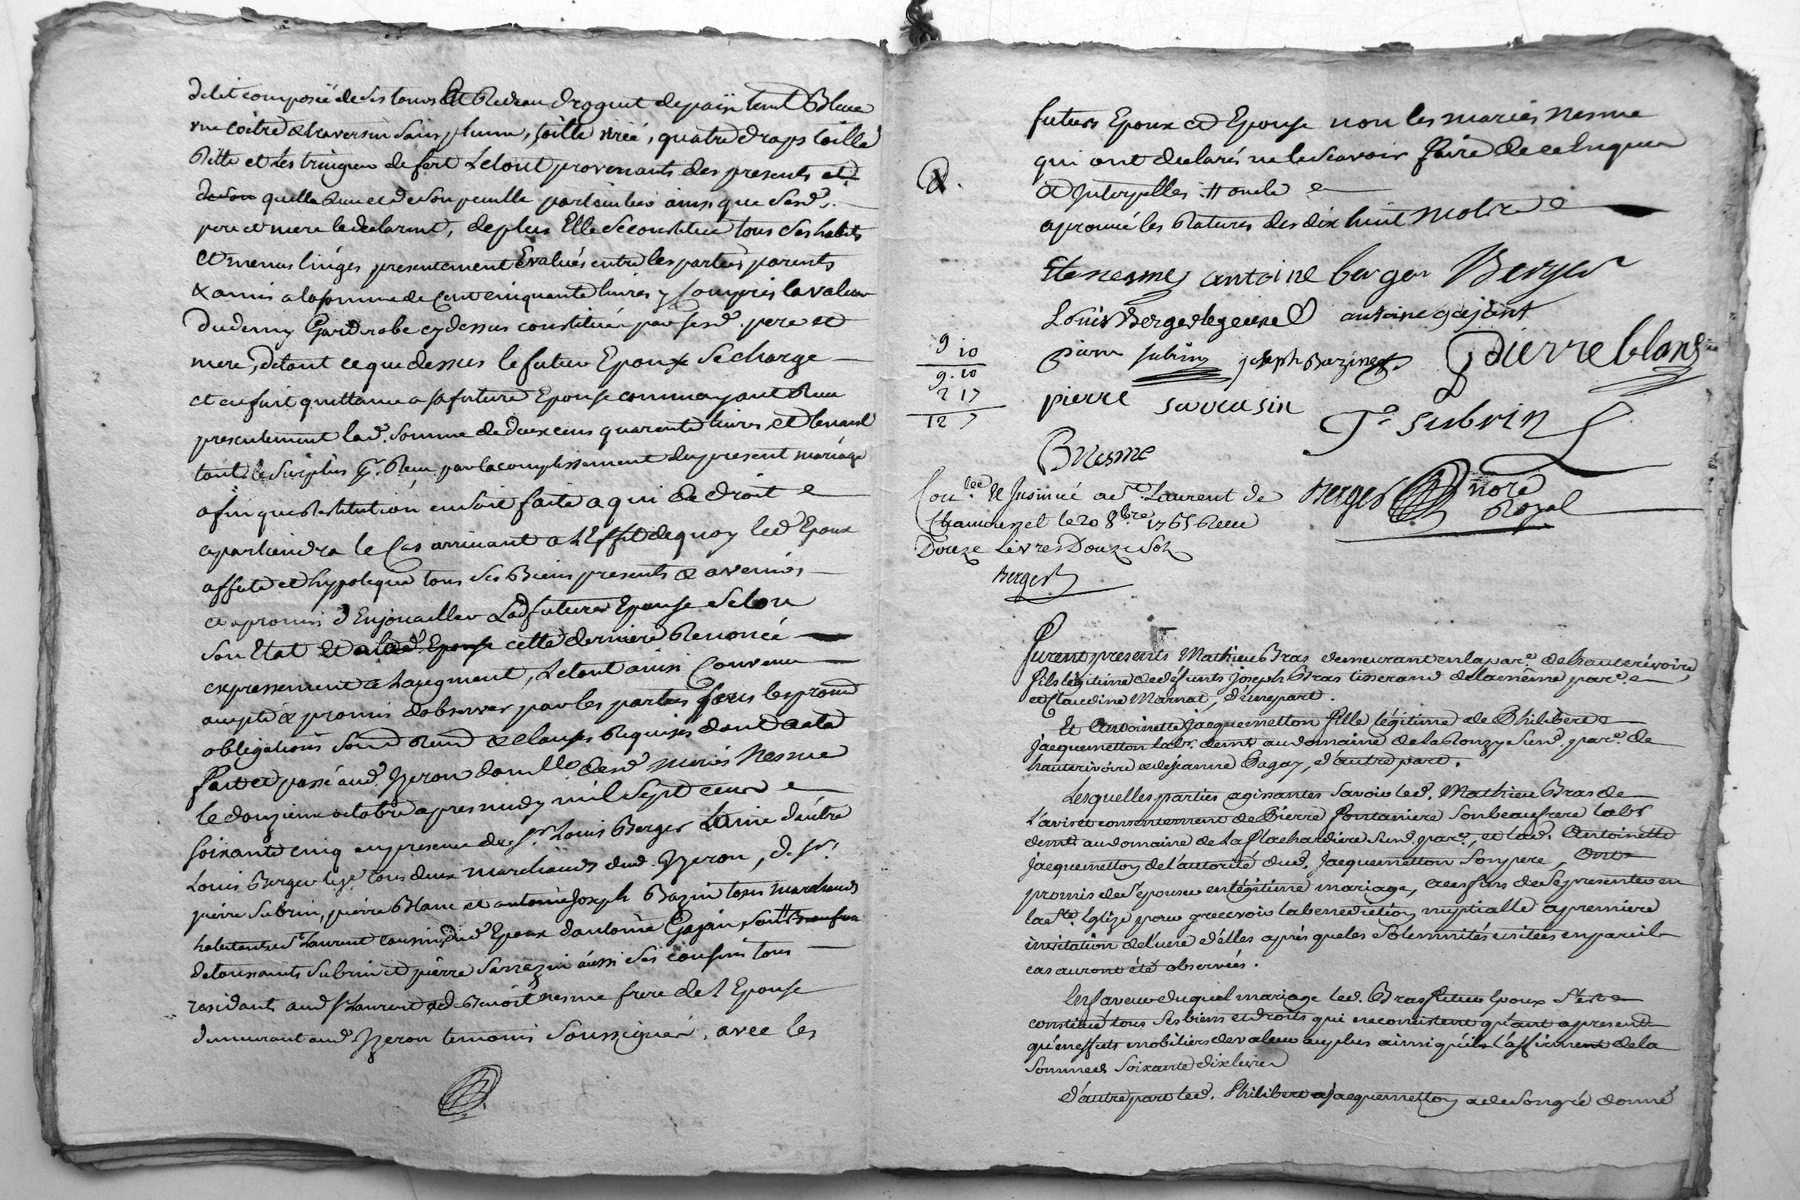 de lit composée de ses tours et Rideau droguet de païs teint Bleue
une coître & traversin sans plume, toille rirée, quatre draps toille
Ritte et Les tringues de fert Letout provenants des presents et
de son quelle a Receu de son peculle particulier ainsi que Sesd.
pere et mere le declarent, de plus Elle Se constitue tous Ses habits
et menus linges presentement Evalués entre les parties parents
& amis a la somme de Cent cinquante livres y Compris la valeur
Dudemy Garderobe cy dessus constituée par sesd. pere et
mere, de tout ce que dessus le futeur Epoux Se charge
et en fait quittance a sa future Epouse comme ayant Reçu
presentement lad. Somme de deux cens quarente livres, et tenant
tout le Surplus pr. Reçu par lacomplissement du present mariage
afin que Restitution en soit faite a qui de droit
apartiendra le Cas arrivant a L'Effet de quoy led. Epoux
affecte et hypoteque tous Ses Biens presents & avenirs
et a promis d'Enjouailler Lad. future Epouse Selon
Son Etat et a lad. Epouse cette derniere Renoncé
expressement a Laugment, Le tout ainsi Convenu
accepté & promis d'observer par les parties sous les peines
obligations Soumd. Renond. & Clauses Requises dont acte
fait et passé aud. Yzeron domille. desd. mariés Nesme
le douzieme octobre apres midy mil Sept cens
soixante cinq en presence de sr. Louis Berger Lainé d'autre
Louis Berger leje. tous deux marchands dud. Yzeron, de sr.
pierre Subrin, pierre Blanc et antoine Joseph Bazin tous marchands
habitants St. Laurent cousins dud. Epoux d'antoine Gajan, Son H Beaufrere
de toussaints Subrin et pierre Sarrazin aussi Ses cousins tous
residants aud. St. Laurent et de Benoit nesme frere de l'Epouse
demeurant aud. Yzeron temoins Soussignés, avec les
futurs Epoux et Epouse non les mariés Nesme
qui ont declarés ne le Scavoir faire de ce Enquis
et Interpellés. H oncle
aprouvé les Ratures des dix huit mots
Etenesme antoine berger Berger
Louis Berger le jeune antoine gajant
9 10
pierre subrin joseph Bazin pierre blanc
9. 10
2 17
12 7
pierre sarrasin Ts subrin
B nesme
Conlée & Insinué a St. Laurent de
Chamousset le 20 8bre 1765 Reçu
Douze Livres Douze Sols
Berger
Berger notre Royal
Furent presents Mathieu Bras demeurant en la parse. de hauterivoire
fils légitime de défunts joseph Bras tisserand de la même parse.
et Claudine Marnat, d'une part.
Et Antoinette jacquemetton fille légitime de Philibert
jacquemetton labr. demt. au domaine de la Ronzy Susd. parse. de
hauterivoire et de jeanne Pagay, d'autre part.
Lesquelles parties agissantes Savoir led. Mathieu Bras de
L'avis et consentement de Pierre fontaniere Son beaufrere labr
demt. au domaine de La flachardiere Susd. parse. et lad. Antoinette
jacquemetton de l'autorité dud. jacquemetton Son pere, ont
promis de S'epouser en légitime mariage, a ces fins de Se presenter en
la Ste. Eglize pour y recevoir la benediction nuptialle a premiere
invitation de l'une d'elles après que les Solemnités usitées en pareil
cas auront été observées.
En faveur duquel mariage led. Bras futeur Epoux S'est
constitué tous Ses biens et droits qui ne consistent quant apresent
qu'en effets mobiliers de valeur au plus ainsi qu'il L'affirment de la
Somme de Soixante dix livres
d'autre part led. Philibert jacquemetton a de Son gré donné